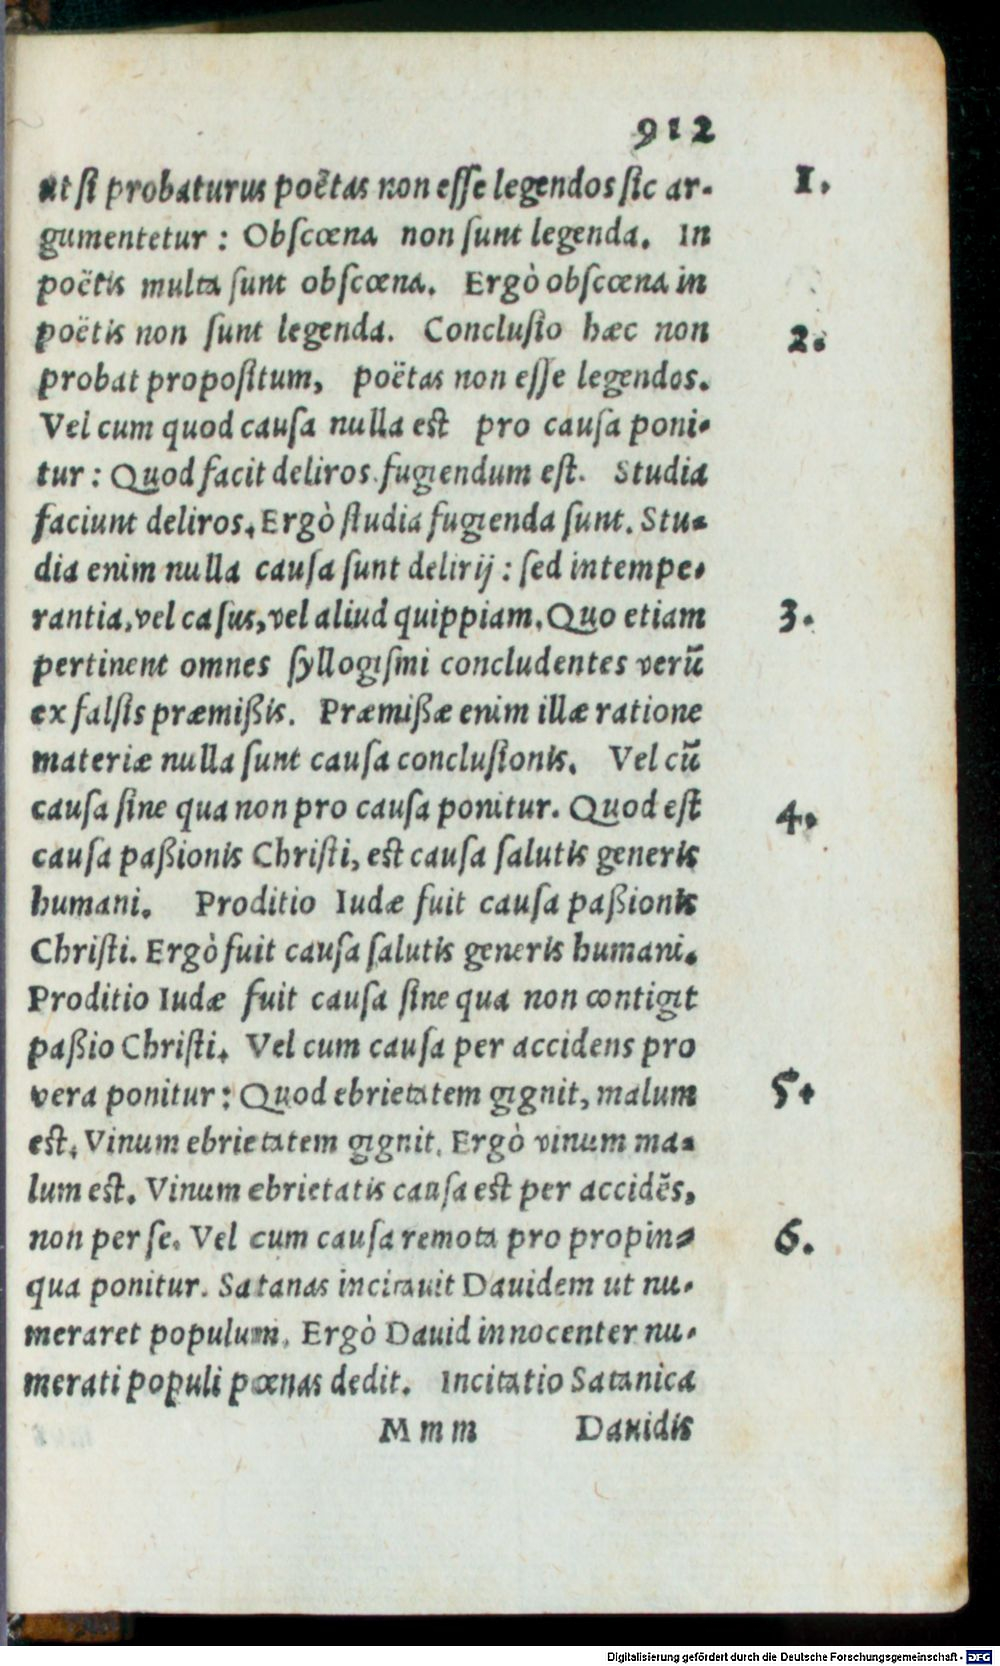 912
ut ſi probaturus poëtas non eſſe legendos ſic ar- 1.
gumentetur : Obſcœna non ſunt legenda. In
poëtis multa ſunt obſcœna. Ergò obſcœna in
poëtis non ſunt legenda. Concluſio hæc non 2.
probat propoſitum, poëtas non eſſe legendos.
Vel cum quod cauſa nulla est pro cauſa poni-
tur : Quod facit deliros fugiendum eſt. Studia
faciunt deliros. Ergò ſtudia fugienda ſunt. Stu-
dia enim nulla cauſa ſunt delirij : ſed intempe-
rantia, vel caſus, vel aliud quippiam. Quo etiam 3.
pertinent omnes ſyllogiſmi concludentes verū
ex falſis præmißis. Præmißæ enim illæ ratione
materiæ nulla ſunt cauſa concluſionis. Vel cū
cauſa ſine qua non pro cauſa ponitur. Quod est 4.
cauſa paßionis Chriſti, est cauſa ſalutis generis
humani. Proditio Iudæ fuit cauſa paßionis
Chriſti. Ergò fuit cauſa ſalutis generis humani.
Proditio Iudæ fuit cauſa ſine qua non contigit
paßio Chriſti. Vel cum cauſa per accidens pro
vera ponitur : Quod ebrietatem gignit, malum 5.
est. Vinum ebrietatem gignit. Ergò vinum ma-
lum est. Vinum ebrietatis cauſa est per accidēs,
non per ſe. Vel cum cauſa remota pro propin- 6.
qua ponitur. Satanas incitauit Dauidem ut nu-
meraret populum. Ergò Dauid innocenter nu-
merati populi pœnas dedit. Incitatio Satanica
Mmm Dauidis
Digitalisierung gefördert durch die Deutsche Forschungsgemeinschaft - DFG